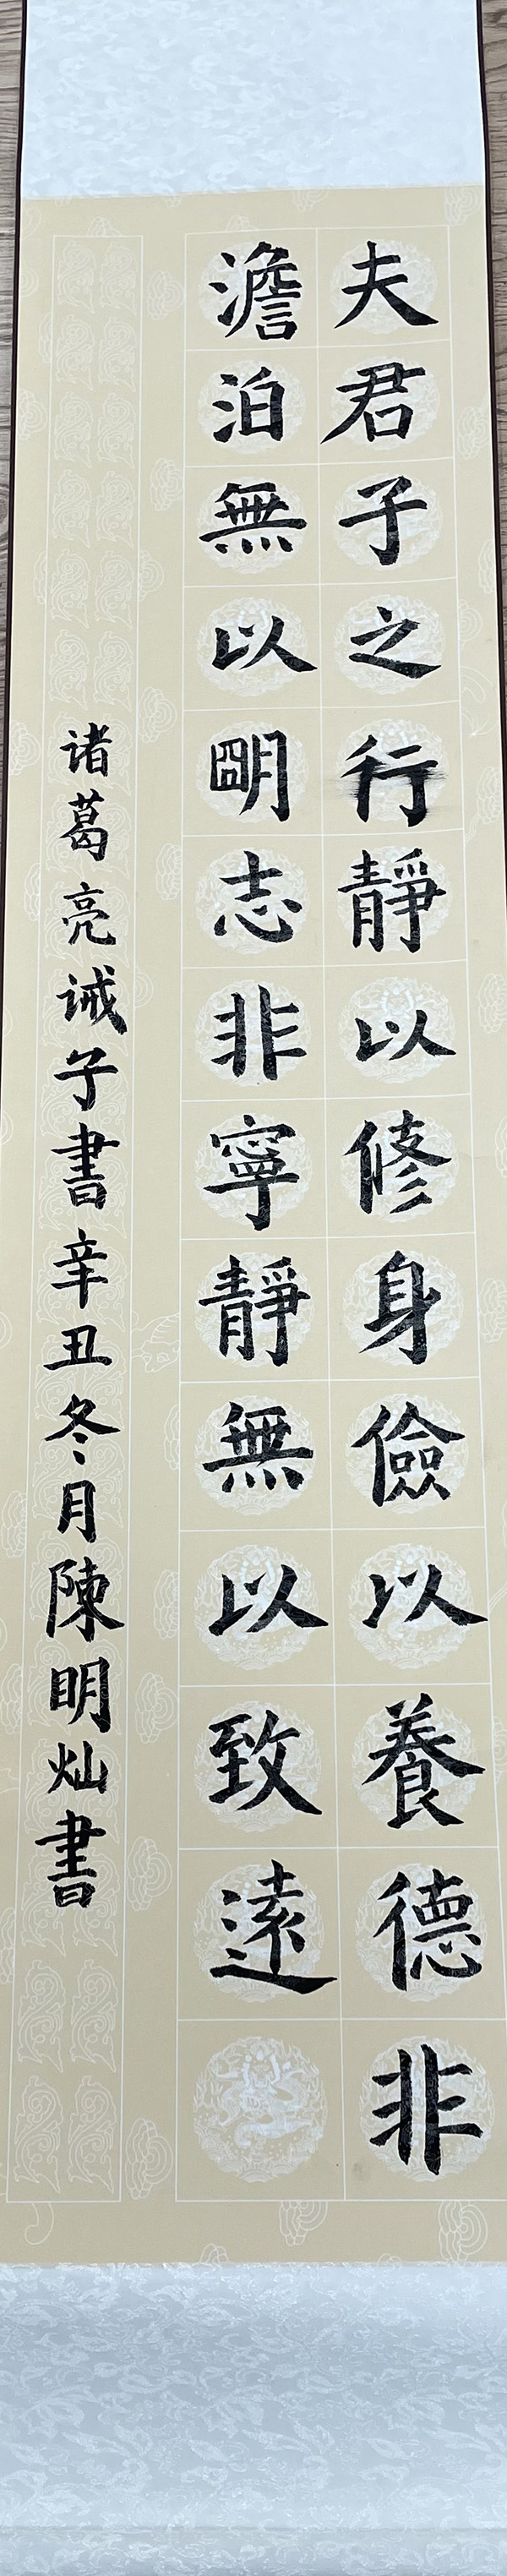 夫君子之行靜以修身儉以養德非
澹泊無以朙志非寧靜無以致遠
诸葛亮诫子書辛丑冬月陳明灿書